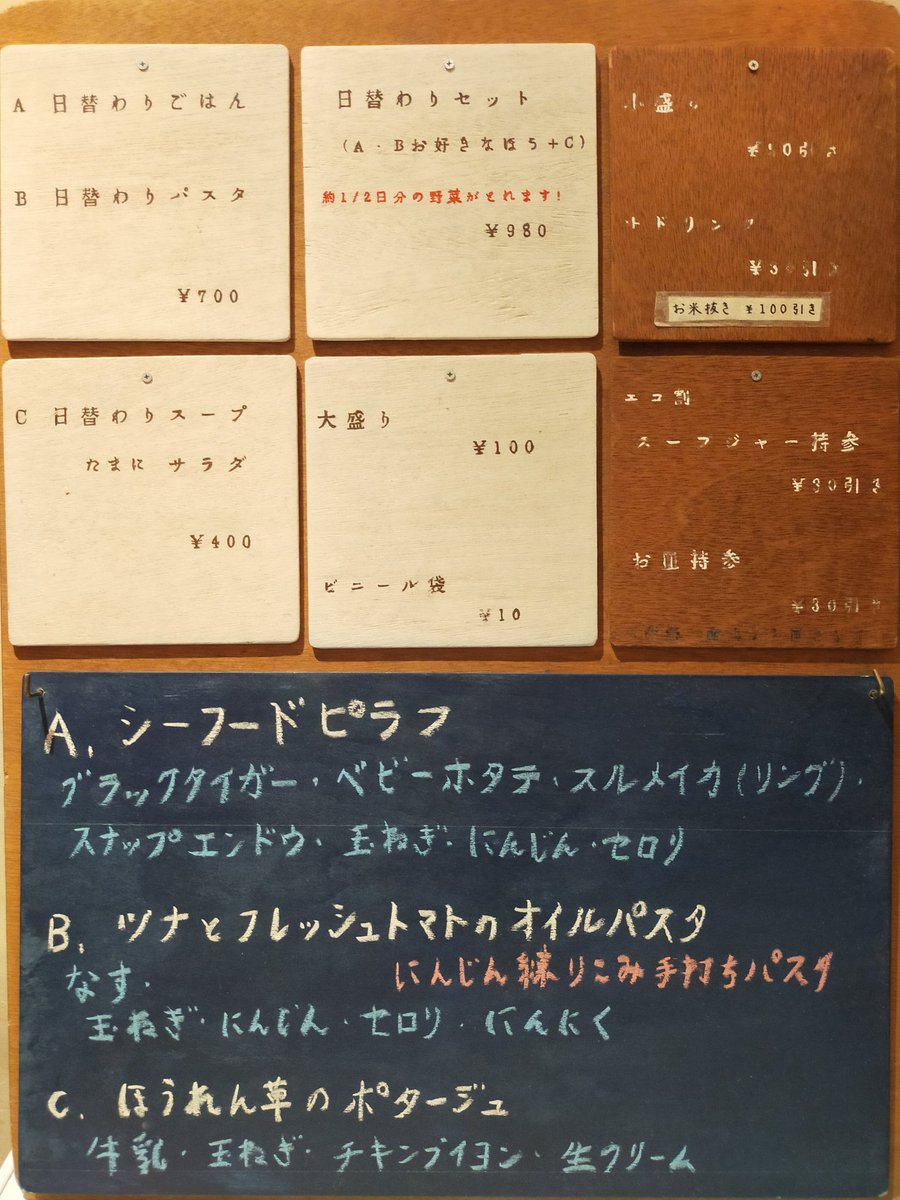 A 日替わりごはん
B 日替わりパスタ
¥700
日替わりセット
(A・Bお好きなほう+C)
約1/2日分の野菜がとれます!
¥980
小盛り
引き
ドリンク
¥30引き
お米抜き ¥100引き
C 日替わりスープ
たまに サラダ
¥400
大盛り
¥100
ビニール袋
¥10
エコ割
スープジャー持参
¥30引き
お皿持参
¥30引き
A. シーフードピラフ
ブラックタイガー・ベビーホタテ・スルメイカ(リング)・
スナップエンドウ・玉ねぎ・にんじん・セロリ
B. ツナとフレッシュトマトのオイルパスタ
なす・
にんじん練りこみ手打ちパスタ
玉ねぎ・にんじん・セロリ・にんにく
C. ほうれん草のポタージュ
牛乳・玉ねぎ・チキンブイヨン・生クリーム